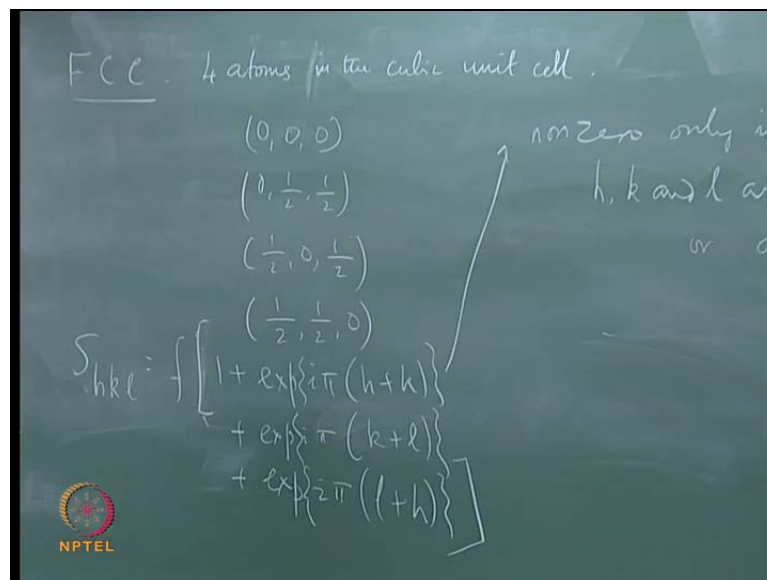 FCC. 4 atoms in the cubic unit cell.
(0, 0, 0)
(0, 1/2, 1/2)
(1/2, 0, 1/2)
(1/2, 1/2, 0)
S_hkl = f[1 + exp{iπ(h+k)}
+ exp{iπ(k+l)}
+ exp{iπ(l+h)}]
non zero only
h, k and l
or
NPTEL